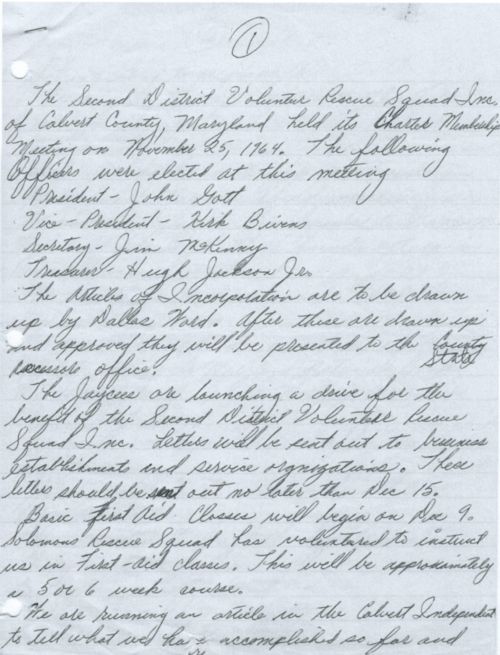 1
The Second District Volunteer Rescue Squad Inc.
of Calvert County, Maryland held its Charter Membership
Meeting on November 25, 1964. The following
Officers were elected at this meeting
President - John Gott
Vice - President - Kirk Bivens
Secretary - Jim McKinny
Treasurer - Hugh Jackson Jr.
The Articles of Incorpolation are to be drawn
up by Dallas Ward. After these are drawn up
and approved they will be presented to the County
State
office.
The Jaycees are launching a drive for the
benefit of the Second District Volunteer Rescue
Squad Inc. Letters will be sent out to business
establishments and service orgnizations. These
letters should be sent out no later than Dec 15.
Basic First Aid Classes will begin on Dec 9.
Solomons Rescue Squad has voluntared to instruct
us in First-aid classes. This will be approximately
a 5 or 6 week course.
We are running an article in the Calvert Independent
to tell what we have accomplished so far and